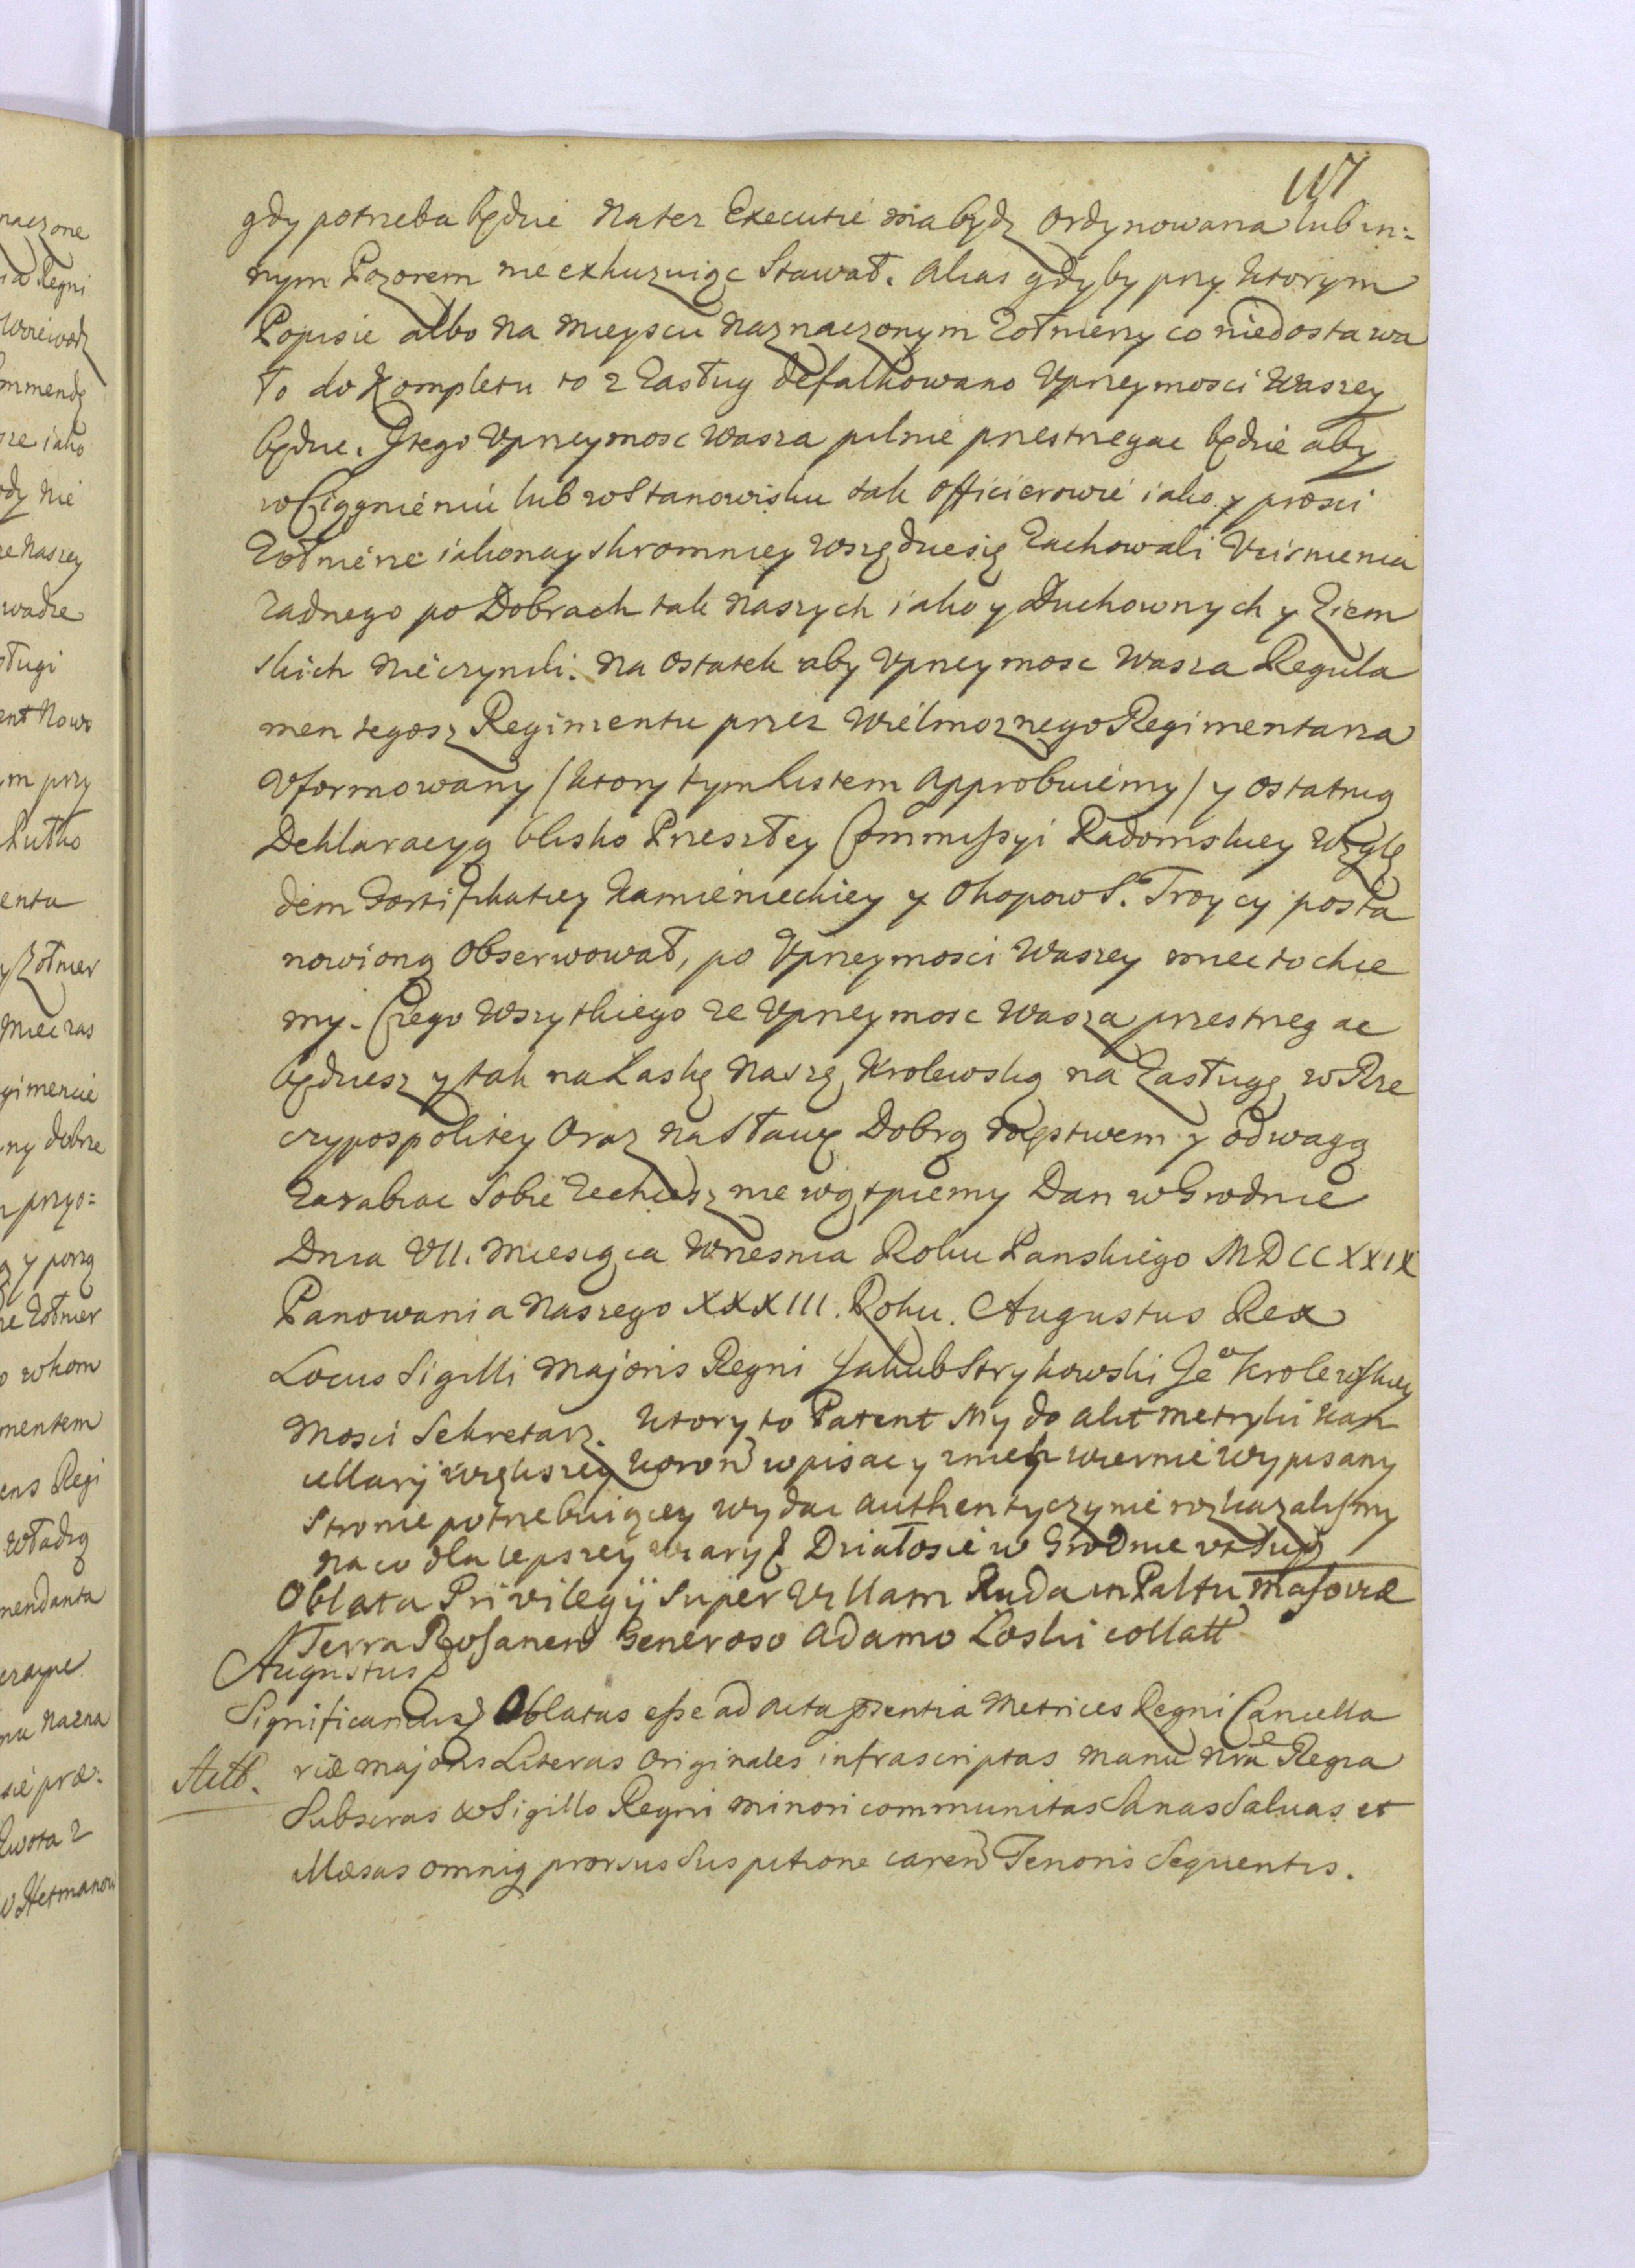 117
gdy potrzeba będzie na tez Executie ma bydz ordynowana lub in=
nym Pozorem nie exkuzuiąc stawał. Alias gdyby przy ktorym
Popisie albo na mieyscu naznaczonym Zołnierzy co niedostawa
ło do Kompletu to z Zasług defalkowano Vprzeymosci Waszey
będzie. Y tego Vprzeymosc Wasza pilnie przestrzegac będzie aby
w Ciągnieniu lub w Stanowisku tak Officierowie iako y prosci
Zołnierze iakonayskromniey wszędzie się Zachowali Vcisnienia
Zadnego po Dobrach tak Naszych iako y Duchownych y Ziem
skich nieczynili. Na ostatek aby Vprzeymosc Wasza Regula
men tegosz Regimentu przez Wielmoznego Regimentarza
Vformowany / ktory tym Listem approbuiemy / y ostatnią
Deklaracyą blisko Przeszłey Commissyi Radomskiey Wzglę
dem Fortifikatiey Kamienieckiey y Okopow S. Troycy posta
nowioną obserwował, po Vprzeymosci Waszey miec to chce
my. Czego Wszytkiego ze Vprzeymosc Wasza przestrzegac
będziesz y tak na Laskę Naszę Krolewską na Zasługę w Rze
czypospolitey Oraz na Sławę Dobrą męstwem y odwagą
Zarabiac Sobie Zechcesz nie wątpiemy Dan w Grodnie
Dnia VII. Miesiąca Wrzesnia Roku Panskiego MDCCXXIX
Panowania Naszego XXXIII. Roku. Augustus Rex
Locus Sigilli Majoris Regni Jakub Strykowski Jeo Krolewskiey
Mosci Sekretarz. Ktory to Patent My do akt Metryki Kan
cellaryi większey koron wpisac y z nich wiernie wypisany
Stronie potrzebuiącey wydac authentycznie roskazalismy
Na co dla lepszey wiary Działosie w Grodnie vt supra
Oblata Privilegij super Villam Ruda in Paltu Masoviæ
Terra Rosanen Generoso Adamo Łoski collatt
Augustus
Significamus Oblatas esse ad Acta præsentia Metrices Regni Cancella
Actt. riæ majoris Literas Originales infrascriptas manu nra Regia
Subscras et Sigillo Regni minori communitas Sanas Saluas et
illæsas omniq prorsus Suspitione caren Tenoris Sequentis.